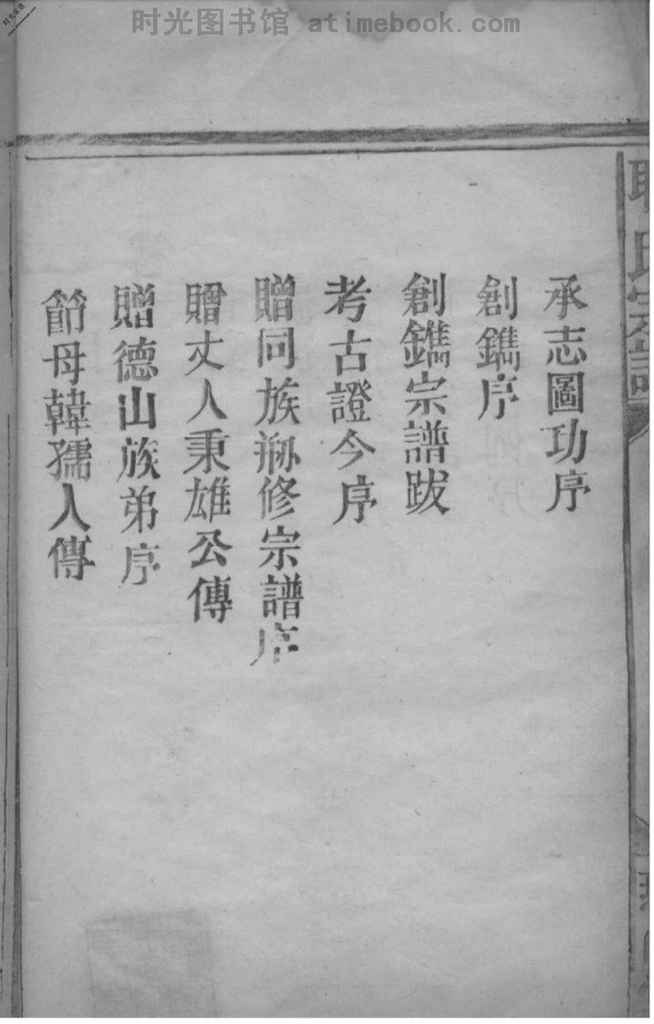 时光图书馆 atimebook.com
承志圖功序
創鐫序
創鐫宗譜跋
考古證今序
贈同族刱修宗譜序
贈丈人秉雄公傳
贈德山族弟序
節母韓孺人傳